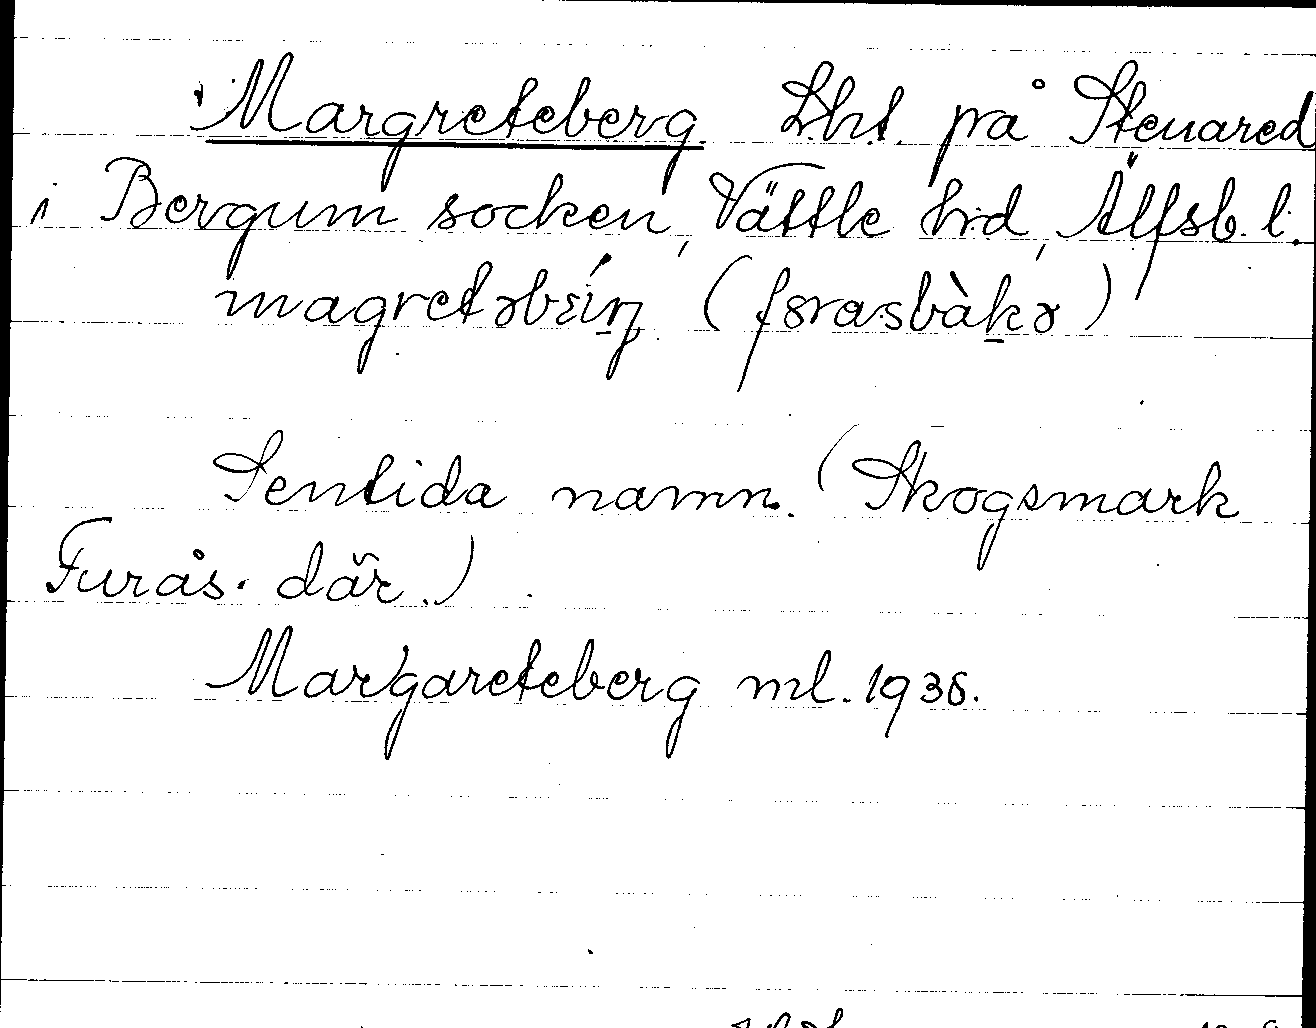 Margreteberg Lht. på Stenared
i Bergum socken, Vättle hd, Älfsb. l.
(
Sentida namn. (Skogsmark
Furås där.)
Margareteberg ml. 1938.